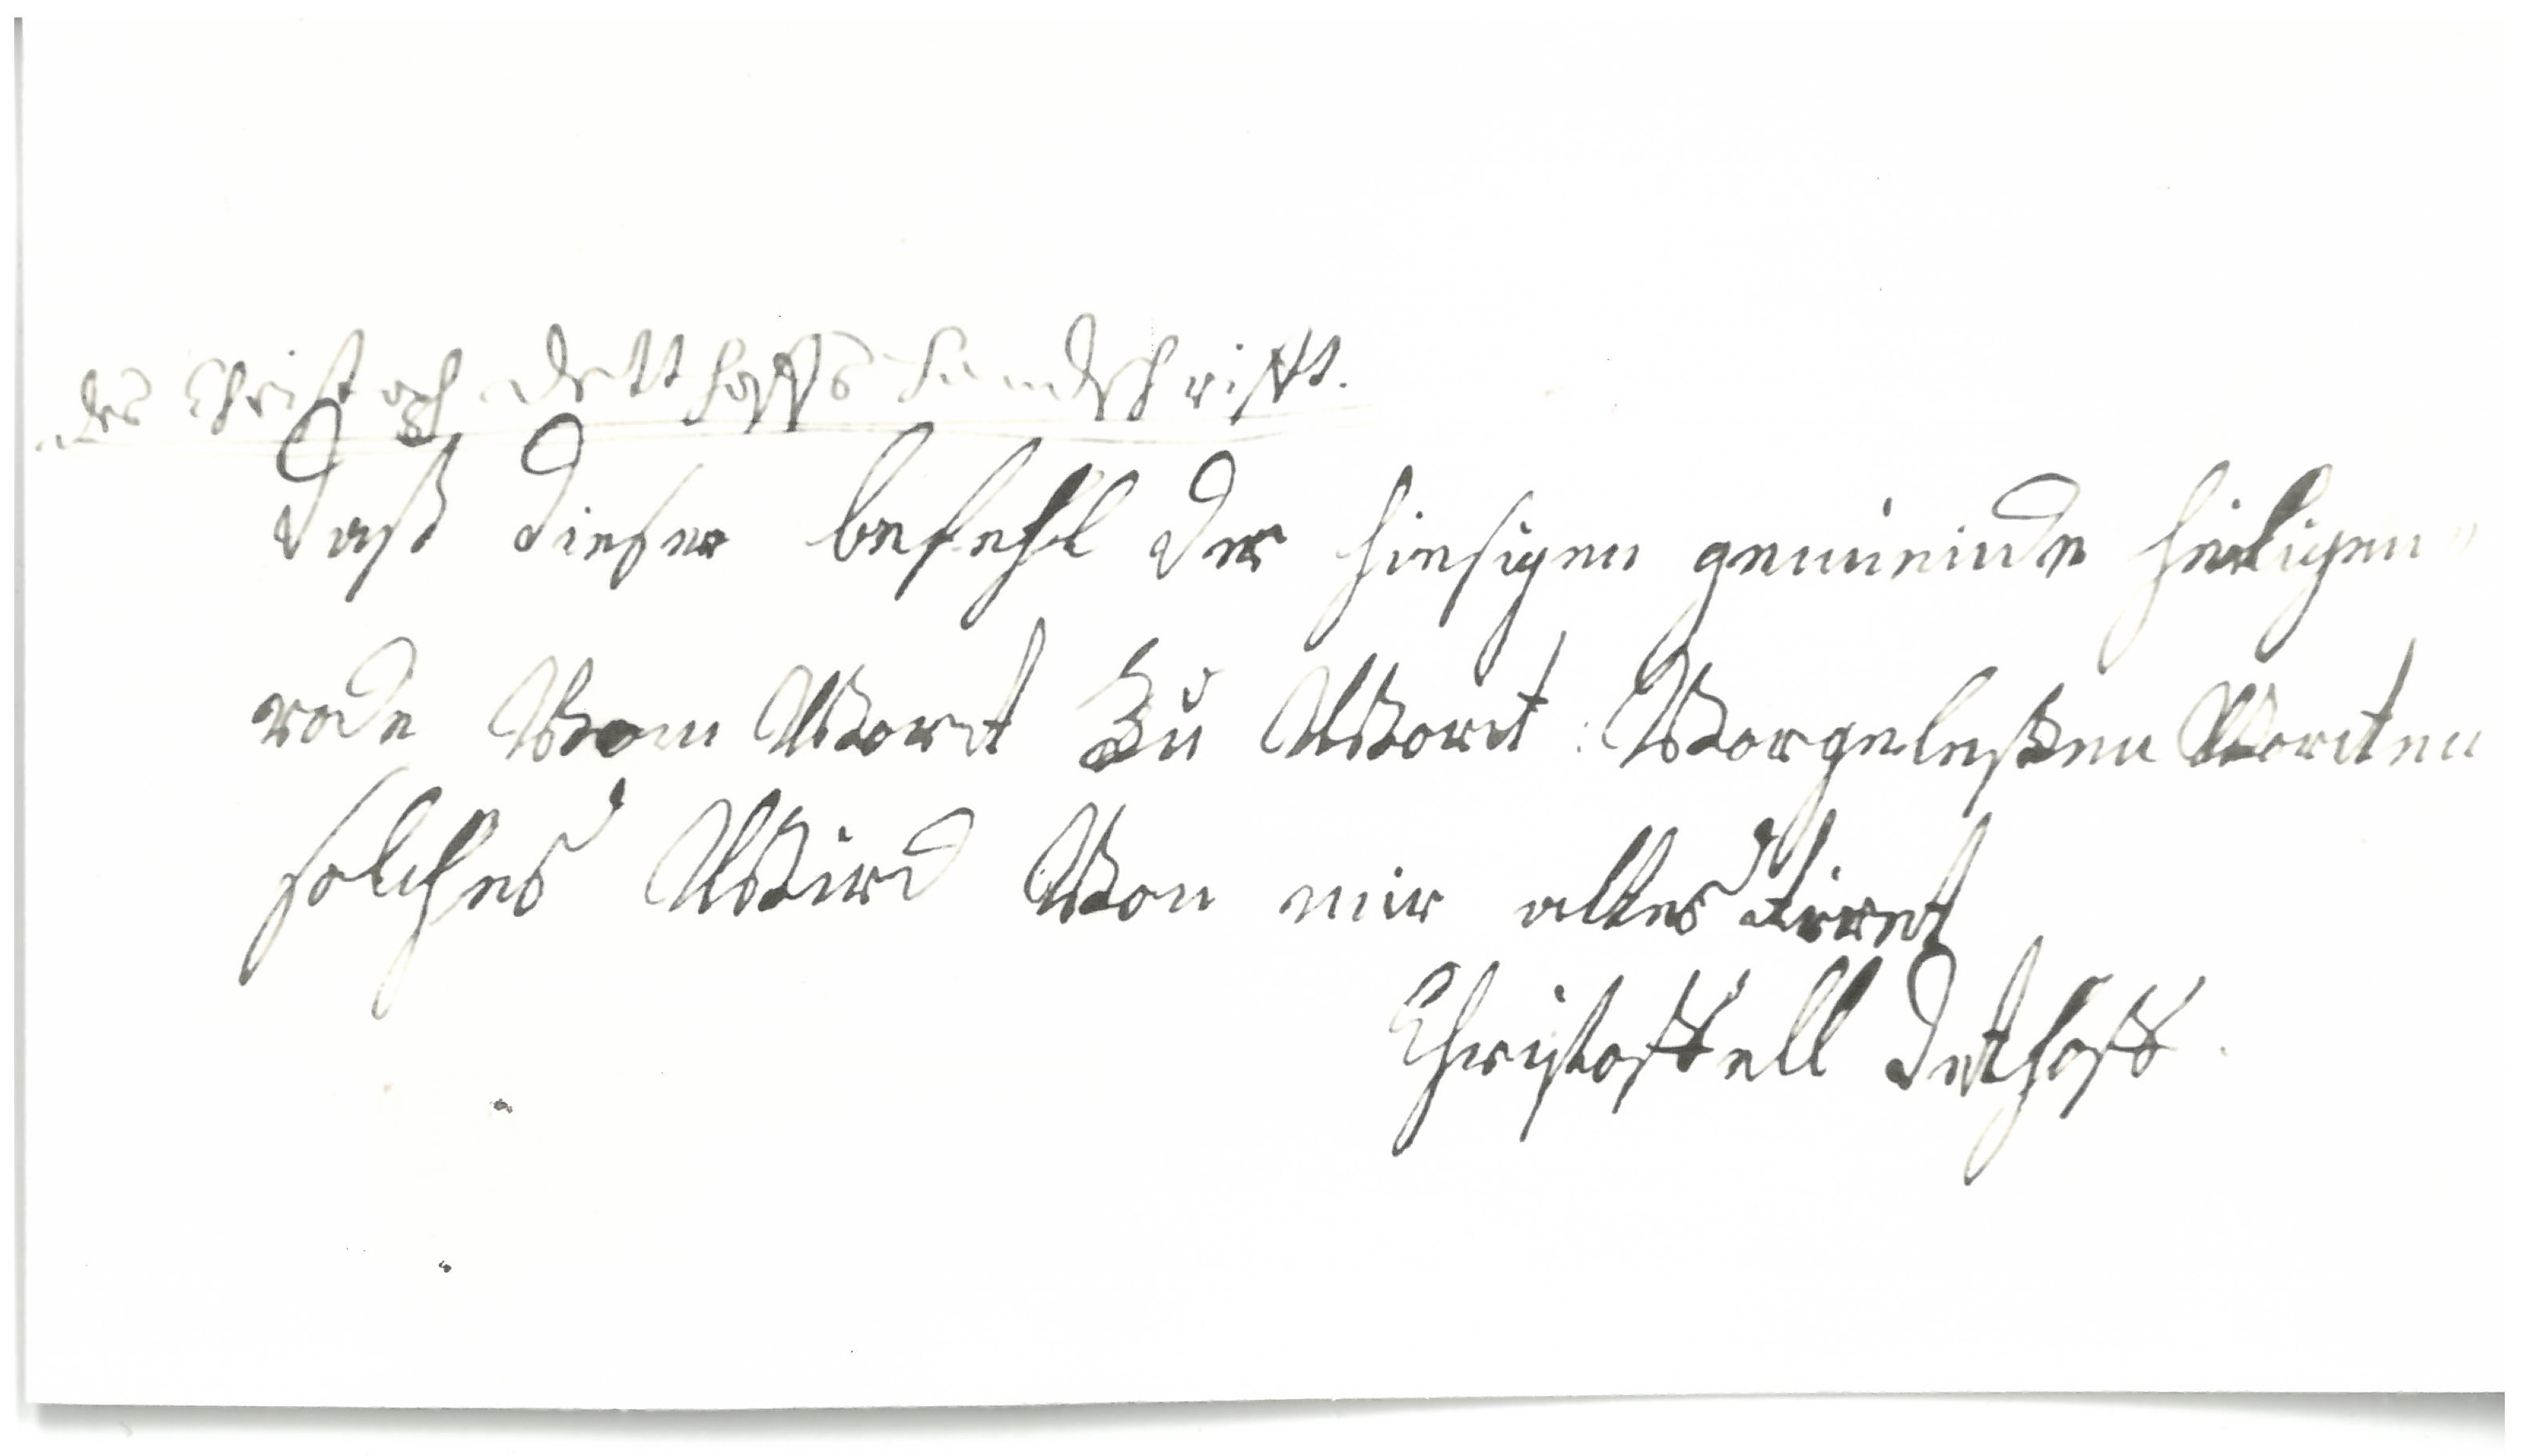 des Christoph Detthoffs Handschrifft.
Daß dieser befehl der hiesigen gemeinde heiligen„
rode Vom Wort Zu Wort Vorgeleßen Worten
solches Wird Von mir attes tiret
Christoffell Dethoff.